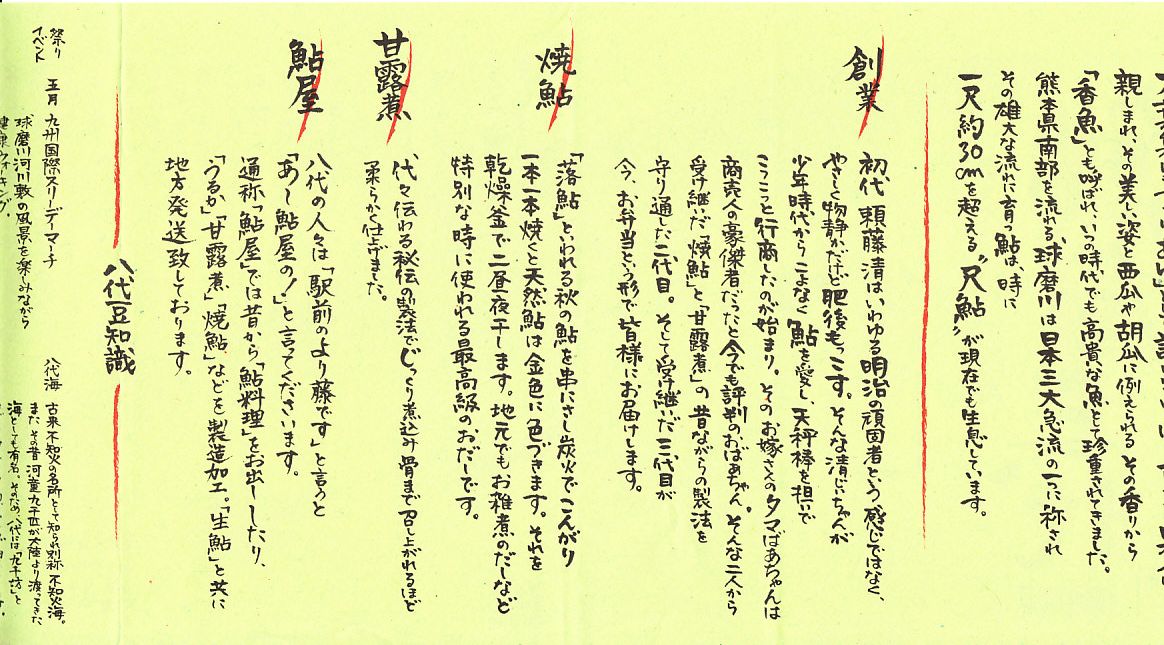 親しまれ、その美しい姿と西瓜や胡瓜に例えられるその香りから
「香魚」とも呼ばれ、いつの時代でも高貴な魚として珍重されてきました。
熊本県南部を流れる球磨川は日本三大急流の一つに称され
その雄大な流れに育つ鮎は、時に
一尺約30cmを超える"尺鮎"が現在でも生息しています。
創業
初代 頼藤清はいわゆる明治の頑固者という感じではなく、
やさしく物静かだけど肥後もっこす。そんな清じいちゃんが
少年時代からこよなく鮎を愛し、天秤棒を担いで
こつこつと行商したのが始まり。そのお嫁さんのタマばあちゃんは
商売人の豪傑者だったと今でも評判のおばあちゃん。そんな二人から
受け継いだ「焼鮎」と「甘露煮」の昔ながらの製法を
守り通した二代目。そして受け継いだ三代目が
今、お弁当という形で皆様にお届けします。
焼鮎
「落鮎」といわれる秋の鮎を串にさし炭火でこんがり
一本一本焼くと天然鮎は金色に色づきます。それを
乾燥釜で二昼夜干します。地元でもお雑煮のだしなど
特別な時に使われる最高級のおだしです。
甘露煮
代々伝わる秘伝の製法でじっくり煮込み骨まで召し上がれるほど
柔らかく仕上げました。
鮎屋
八代の人々は「駅前のより藤です」と言うと
「あー鮎屋の!」と言ってくださいます。
通称「鮎屋」では昔から「鮎料理」をお出ししたり、
「うるか」「甘露煮」「焼鮎」などを製造加工。「生鮎」と共に
地方発送致しております。
八代豆知識
祭り
イベント
五月 九州国際スリーデーマーチ
球磨川河川敷の風景を楽しみながら
健康ウォーキング
八代海
古来不知火の名所として知られ別称 不知火海。
また、その昔河童九千匹が大陸より渡ってきた
海として有名。そのため八代には「九千坊」と